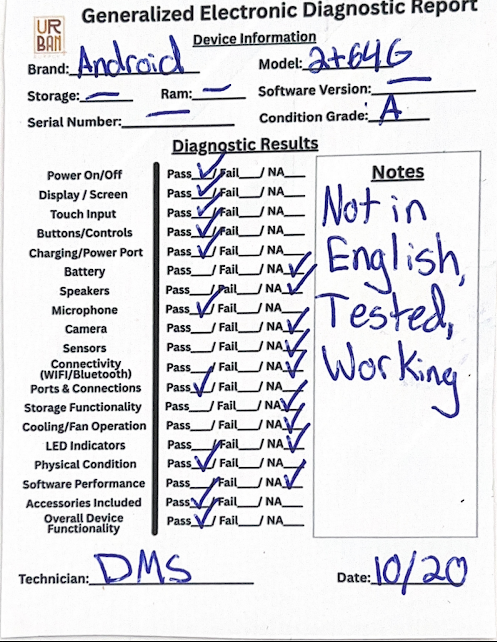 Generalized Electronic Diagnostic Report
UR
BAN
Device Information
Brand: Android Model: 2+64G
Storage: — Ram: — Software Version: —
Serial Number: — Condition Grade: A
Diagnostic Results
Power On/Off Pass ✓/ Fail___/ NA___
Display / Screen Pass ✓/ Fail___/ NA___
Touch Input Pass ✓/ Fail___/ NA___
Buttons/Controls Pass ✓/ Fail___/ NA___
Charging/Power Port Pass ✓/ Fail___/ NA___
Battery Pass___/ Fail___/ NA ✓
Speakers Pass___/ Fail___/ NA ✓
Microphone Pass ✓/ Fail___/ NA___
Camera Pass___/ Fail___/ NA ✓
Sensors Pass___/ Fail___/ NA ✓
Connectivity
(WIFI/Bluetooth) Pass___/ Fail___/ NA ✓
Ports & Connections Pass ✓/ Fail___/ NA___
Storage Functionality Pass___/ Fail___/ NA ✓
Cooling/Fan Operation Pass___/ Fail___/ NA ✓
LED Indicators Pass___/ Fail___/ NA ✓
Physical Condition Pass ✓/ Fail___/ NA___
Software Performance Pass___/ Fail___/ NA ✓
Accessories Included Pass ✓/ Fail___/ NA___
Overall Device
Functionality Pass ✓/ Fail___/ NA___
Notes
Not in
English,
Tested,
Working
Technician: DMS Date: 10/20